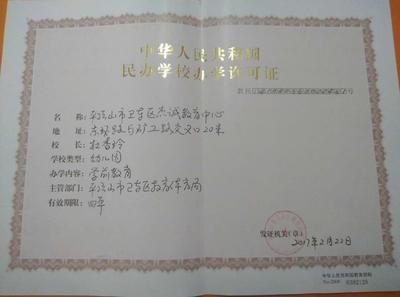 中华人民共和国
民办学校办学许可证
名称：平顶山市卫东区杰诚教育中心
地址：东环路与矿工路交叉口20米
校长：杜香玲
学校类型：幼儿园
办学内容：学前教育
主管部门：平顶山市卫东区教育体育局
有效期限：四年
发证机关（章）
2017年2月22日
中华人民共和国教育部制